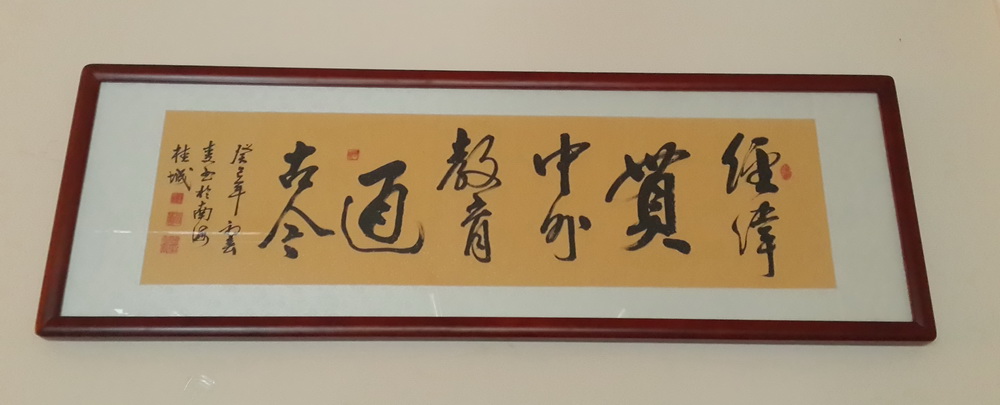 經緯
貫
中外
教育
通
古今
癸巳年雲
書於南海
桂城